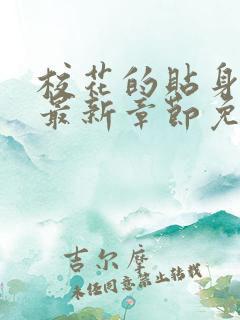 校花的贴身
最新章节免
吉尔度
未经同意禁止转载